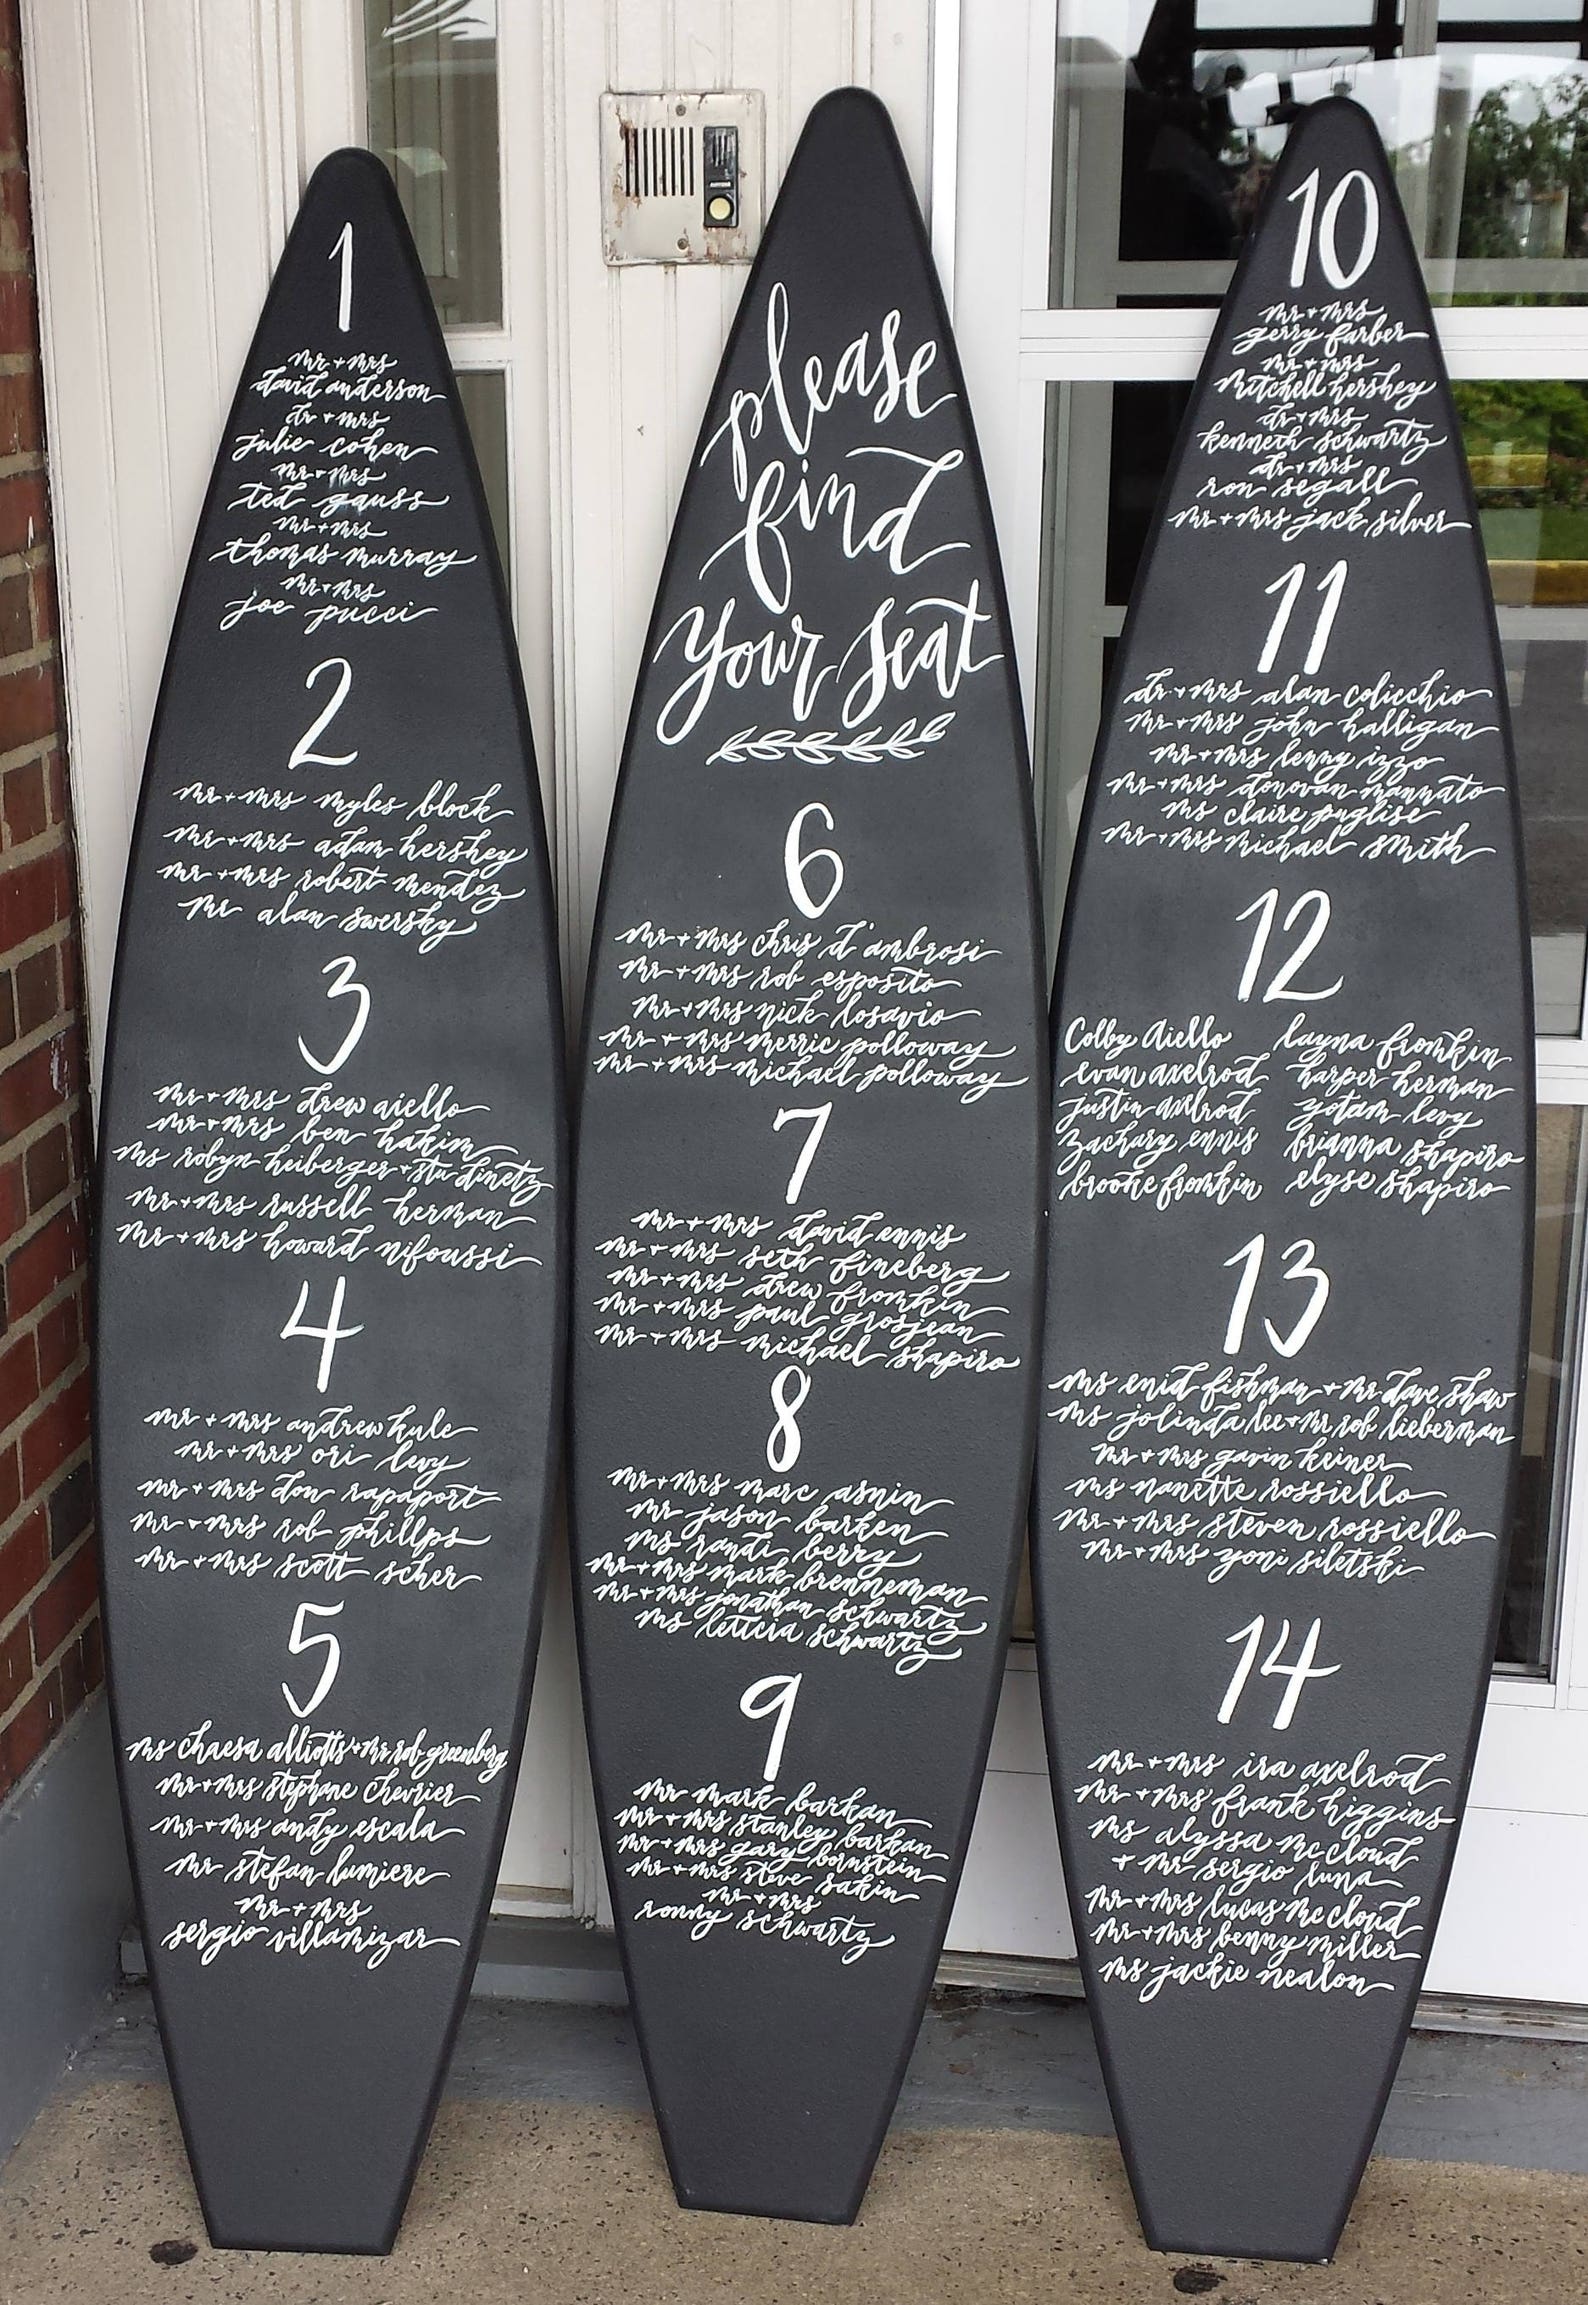 1
mr + mrs
david anderson
dr + mrs
julie cohen
mr + mrs
ted gauss
mr + mrs
thomas murray
mr + mrs
joe pucci
2
mr + mrs myles block
mr + mrs adam hershey
mr + mrs robert mendez
mr alan swersky
3
mr + mrs drew aiello
mr + mrs ben hakim
ms robyn heiberger + stu dinetz
mr + mrs russell herman
mr + mrs howard nifoussi
4
mr + mrs andrew kule
mr + mrs ori levy
mr + mrs don rapaport
mr + mrs rob phillps
mr + mrs scott scher
5
ms chaesa alliotts + mr rob greenberg
mr + mrs stephane chevrier
mr + mrs andy escala
mr stefan lumiere
mr + mrs
sergio villamizar
please
find
your seat
6
mr + mrs chris d'ambrosi
mr + mrs rob esposito
mr + mrs nick losavio
mr + mrs merric polloway
mr + mrs michael polloway
7
mr + mrs david ennis
mr + mrs seth fineberg
mr + mrs drew fromkin
mr + mrs paul grosjean
mr + mrs michael shapiro
8
mr + mrs marc asnin
mr jason barken
ms randi berry
mr + mrs mark brenneman
mr + mrs jonathan schwartz
ms leticia schwartz
9
mr mark barkan
mr + mrs stanley barkan
mr + mrs gary bornstein
mr + mrs steve sakin
mr + mrs
ronny schwartz
10
mr + mrs
gerry farber
mr + mrs
mitchell hershey
dr + mrs
kenneth schwartz
dr + mrs
ron segall
mr + mrs jack silver
11
dr + mrs alan colicchio
mr + mrs john halligan
mr + mrs lenny izzo
mr + mrs donovan mannato
ms claire puglise
mr + mrs michael smith
12
Colby Aiello
evan axelrod
justin axelrod
zachary ennis
brooke fromkin
layna fromkin
harper herman
yotam levy
brianna shapiro
elyse shapiro
13
ms enid fishman + mr dave shaw
ms jolinda lee + mr rob lieberman
mr + mrs gavin keiner
ms nanette rossiello
mr + mrs steven rossiello
mr + mrs yoni siletski
14
mr + mrs ira axelrod
mr + mrs frank higgins
ms alyssa mc cloud
+ mr sergio luna
mr + mrs lucas mc cloud
mr + mrs benny miller
ms jackie nealon